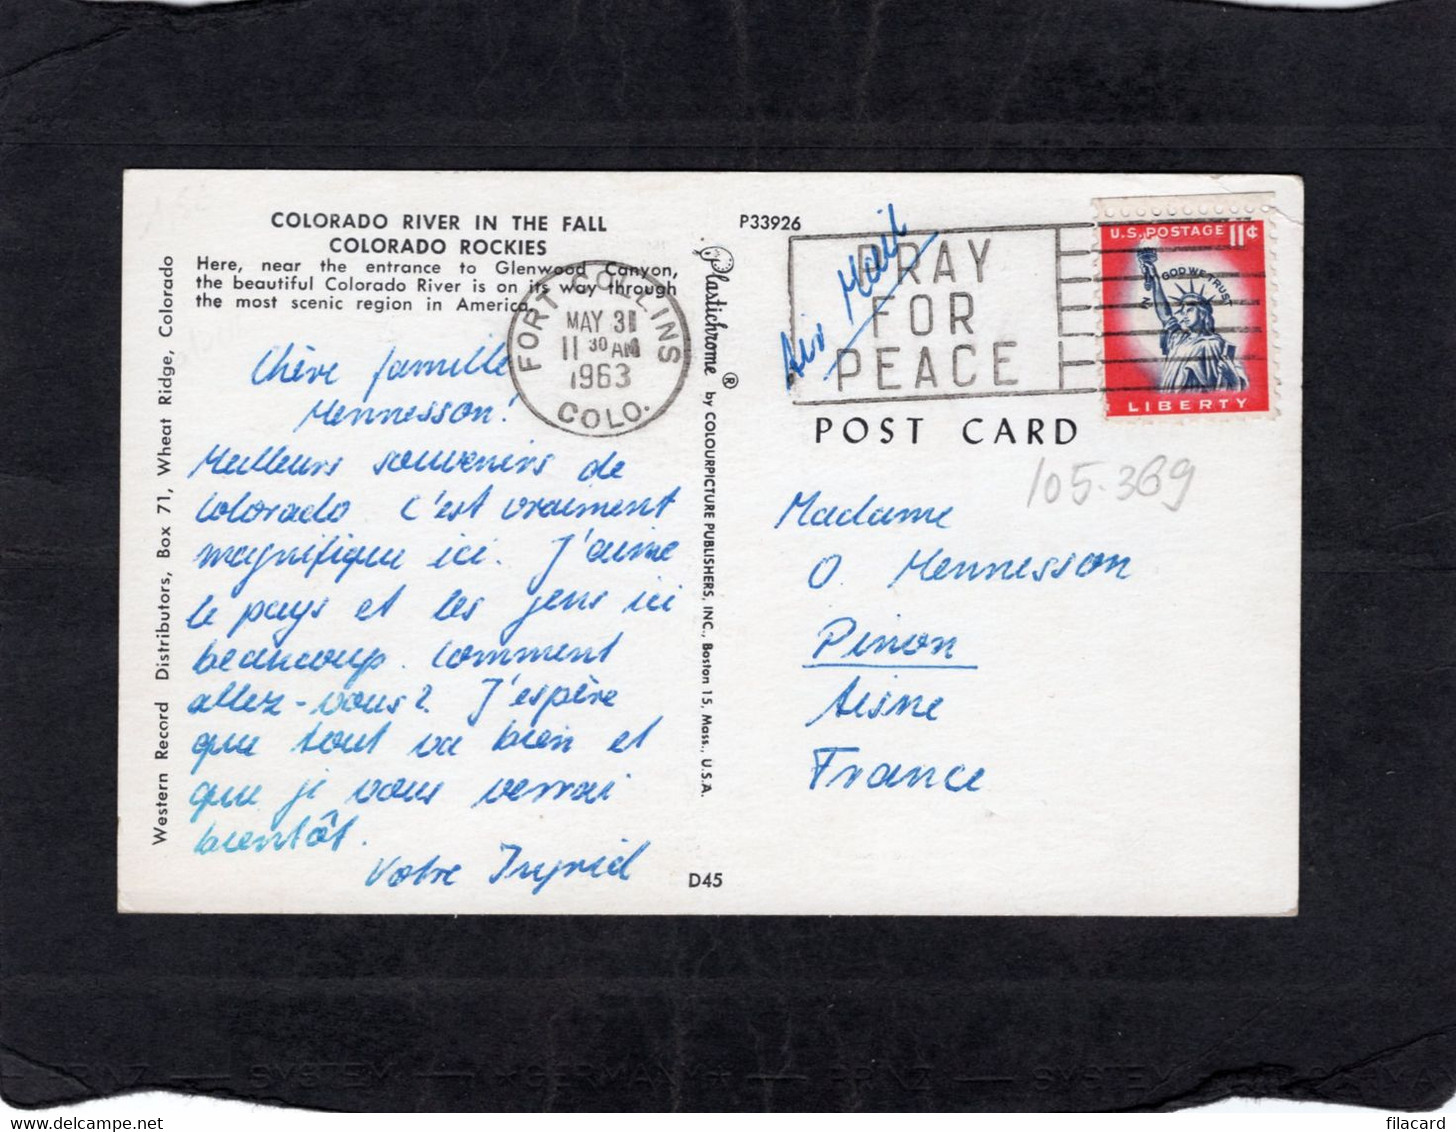 COLORADO RIVER IN THE FALL
COLORADO ROCKIES
Here, near the entrance to Glenwood Canyon,
the beautiful Colorado River is on its way through
the most scenic region in America.
Western Record Distributors, Box 71, Wheat Ridge, Colorado
Chère famille
Mennesson!
Meilleurs souvenirs de
Colorado C'est vraiment
magnifique ici. J'aime
le pays et les gens ici
beaucoup. Comment
allez-vous? J'espère
que tout va bien et
que je vous verrai
bientôt.
Votre Ingrid
FORT COLLINS
MAY 31
11 30 AM
1963
COLO.
Plastichrome ® by COLOURPICTURE PUBLISHERS, INC., Boston 15, Mass., U.S.A.
D45
P33926
Air Mail
PRAY
FOR
PEACE
U.S. POSTAGE 11¢
IN GOD WE TRUST
LIBERTY
POST CARD
105.369
Madame
O. Mennesson
Pinon
Aisne
France
SYSTEM
filacard